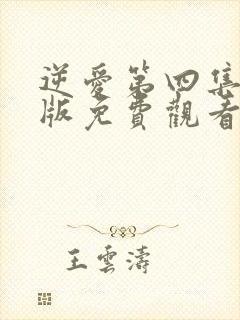 逆愛第四集
版免費觀看
王雲濤